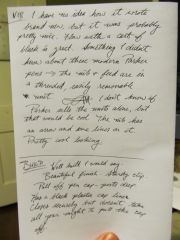 VIII I have no idea how it wrote
brand new, but it was probably
pretty nice. Flow with a cart of
black is great. Something I didn't
know about these modern Parker
pens → the nib & feed are in
a threaded, easily removable
unit. I don't know if
Parker sells the units alone, but
that would be cool. The nib has
an arrow and some lines on it.
Pretty cool looking
Build: Well built I would say
Beautiful finish. Sturdy clip.
Pull off pen cap - posts deep
Has a black plastic cap liner
Closes securely but doesn't take
all your might to pull the cap
off.